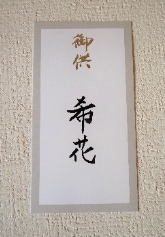 御供
希花